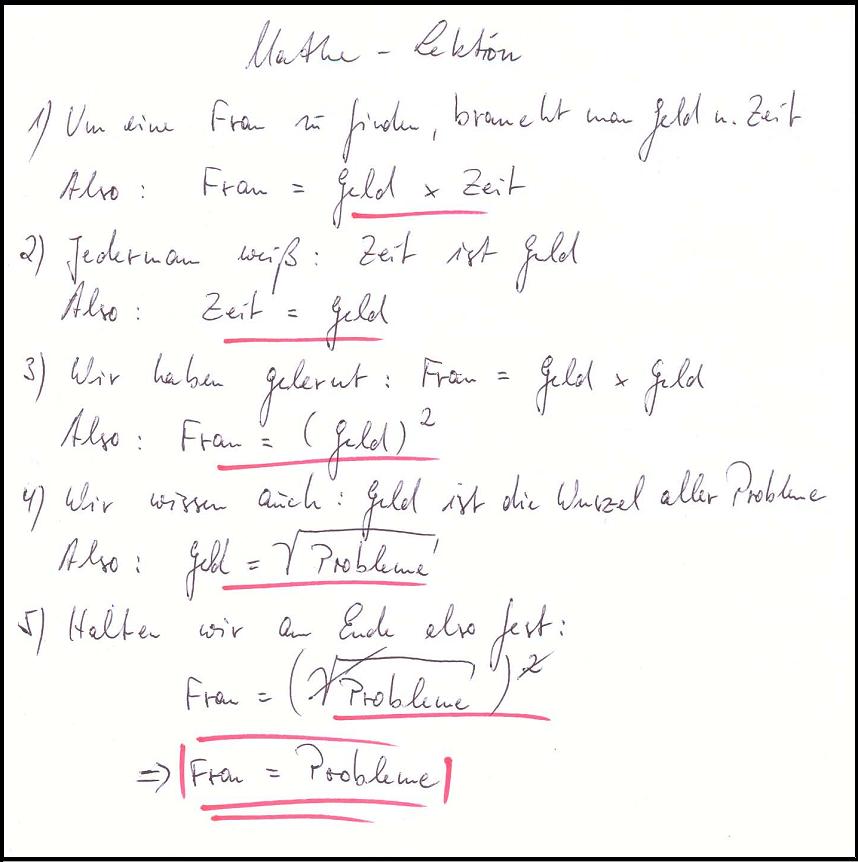 Mathe - Lektion
1) Um eine Frau zu finden, braucht man Geld u. Zeit
Also : Frau = Geld x Zeit
2) Jederman weiß : Zeit ist Geld
Also : Zeit = Geld
3) Wir haben gelernt : Frau = Geld x Geld
Also : Frau = (Geld)²
4) Wir wissen auch : Geld ist die Wurzel aller Probleme
Also : Geld = √Probleme
5) Halten wir am Ende also fest :
Frau = (√Probleme)²
=> Frau = Probleme